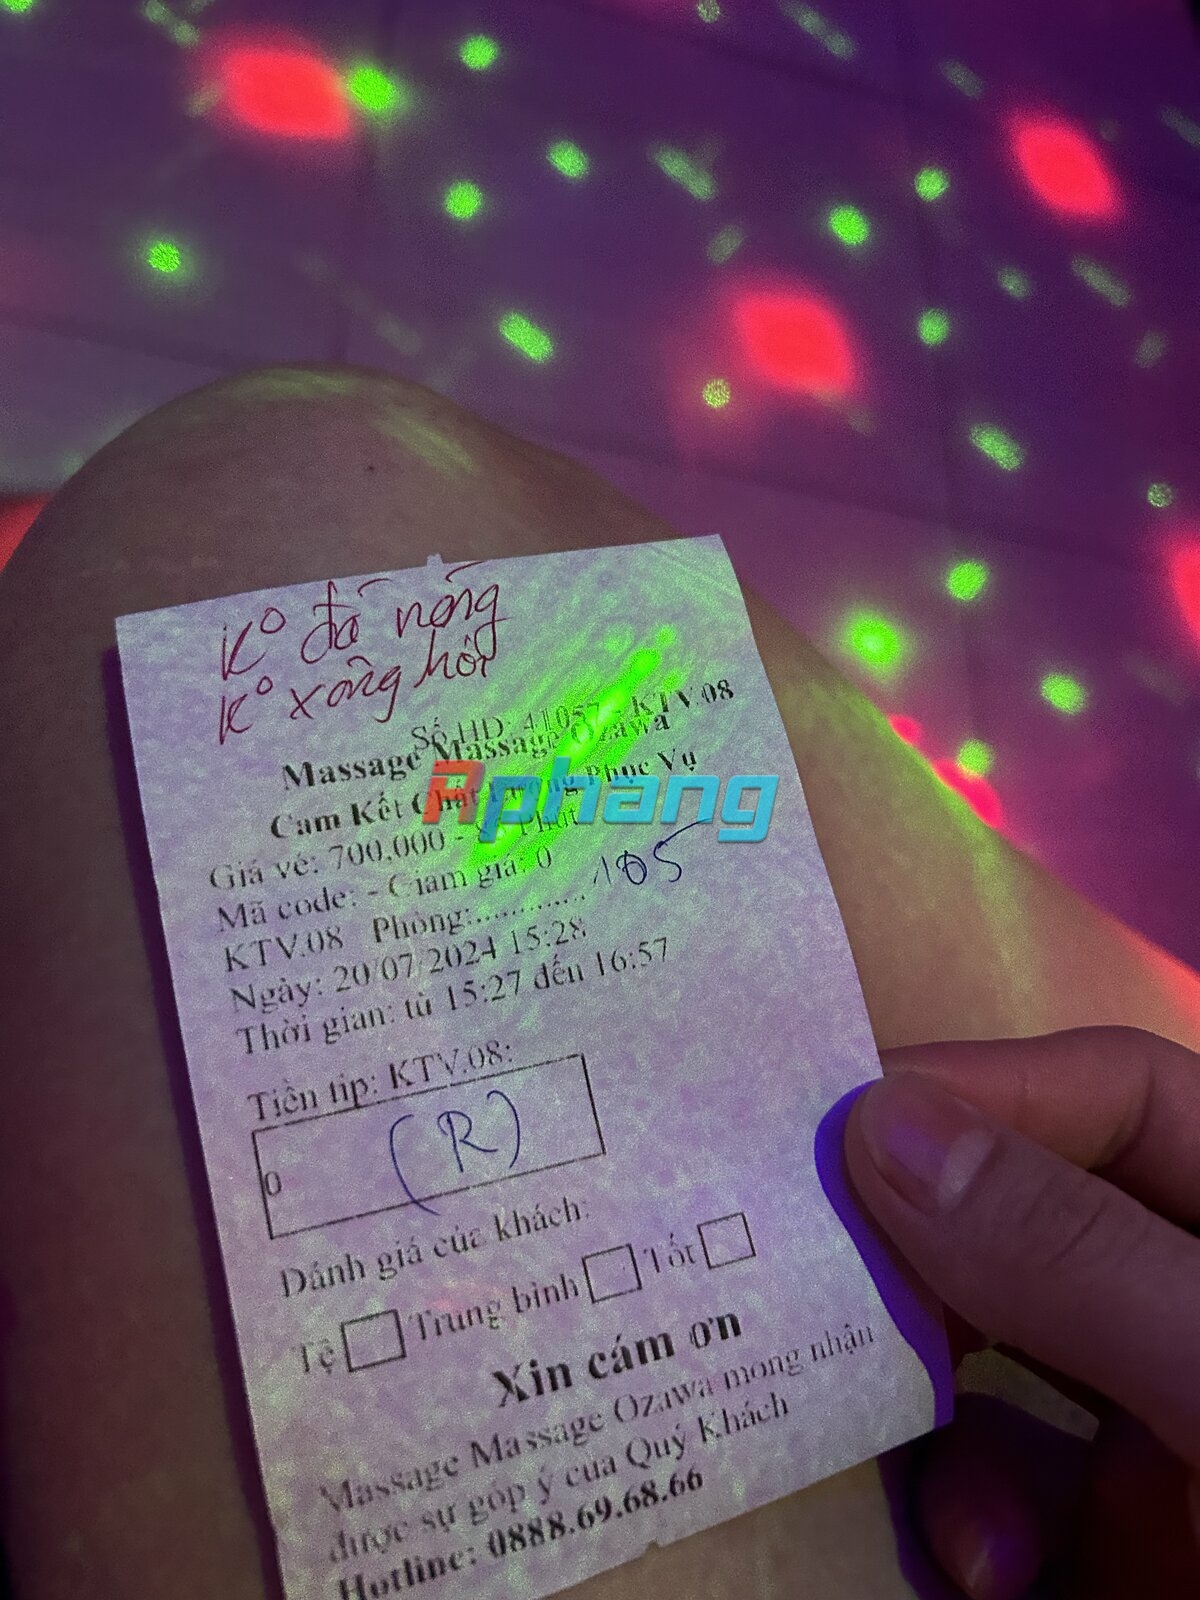 K° đá nóng
K° xông hơi
Số HD: 41057 KTV.08
Massage Massage Ozawa
Cam Kết Chất Phục Vụ
Rphang
Giá vé: 700.000 -
Mã code: - Giảm giá: 0
KTV.08 Phòng:............. 105
Ngày: 20/07/2024 15:28
Thời gian: từ 15:27 đến 16:57
Tiền tip: KTV.08:
0 (R)
Đánh giá của khách:
Tệ Trung bình Tốt
Xin cám ơn
Massage Massage Ozawa mong nhận
được sự góp ý của Quý Khách
Hotline: 0888.69.68.66